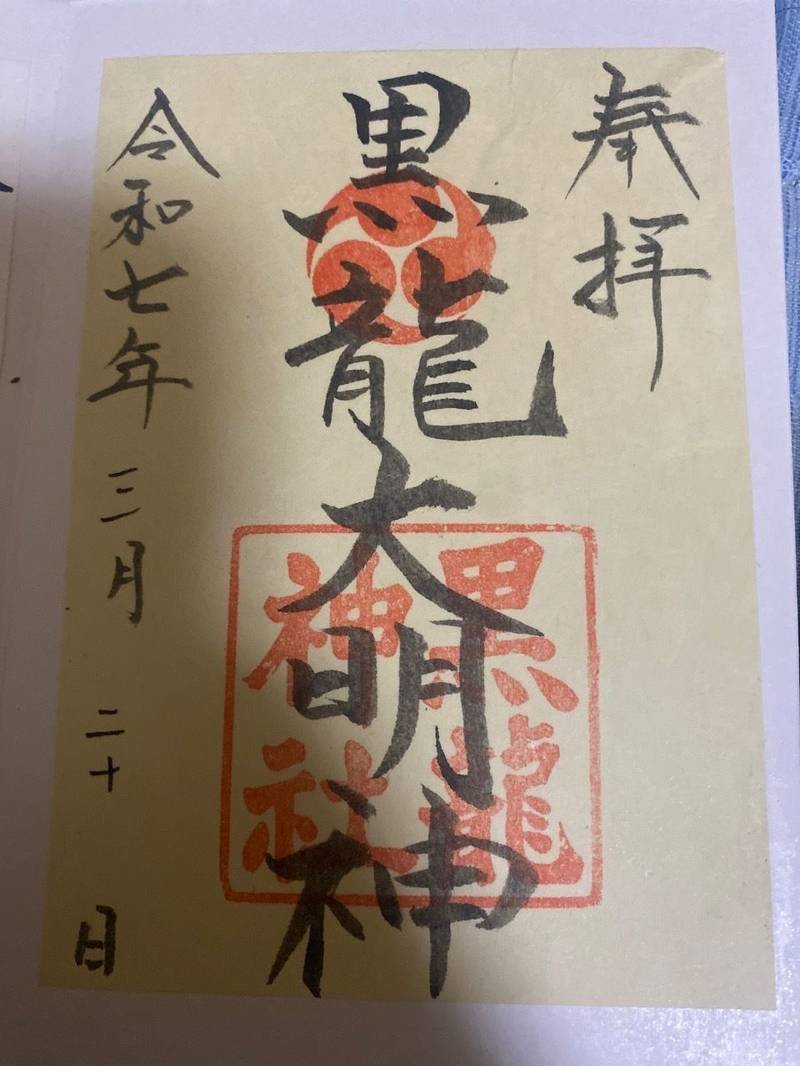 奉拝
黒龍大明神
黒龍
神社
令和七年三月二十日